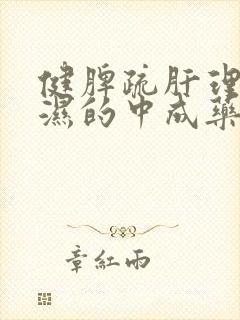 健脾疏肝理
濕的中成藥
章紅雨